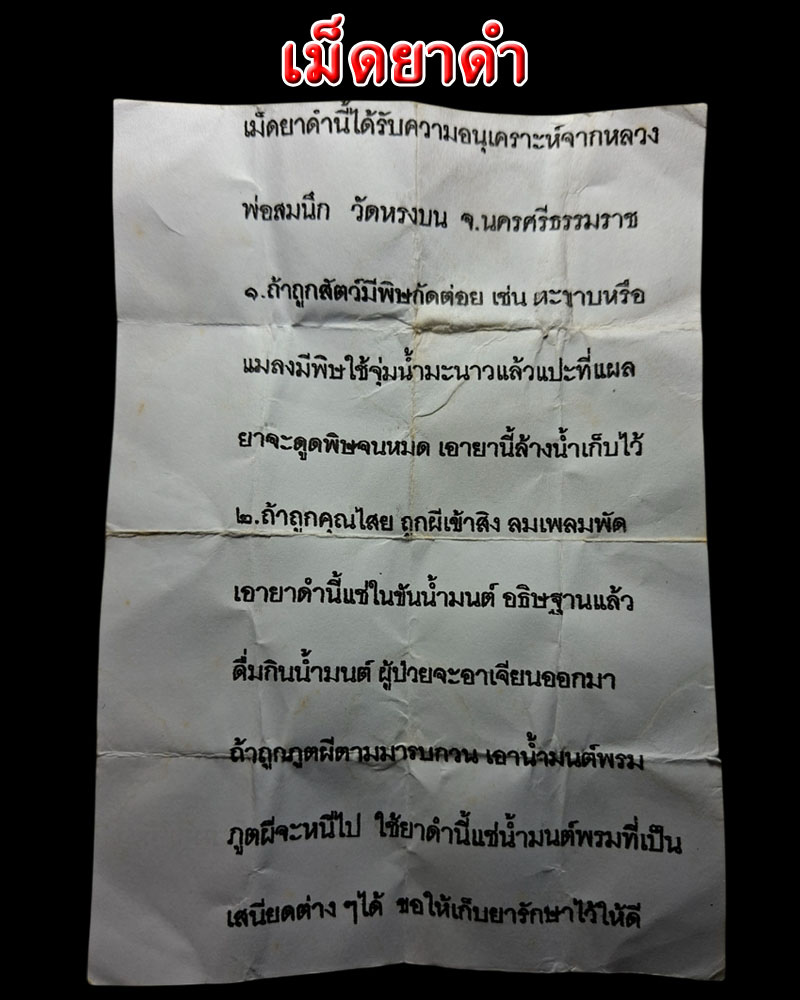 เม็ดยาดำ
เม็ดยาดำนี้ได้รับความอนุเคราะห์จากหลวง
พ่อสมนึก วัดหรงบน จ.นครศรีธรรมราช
๑.ถ้าถูกสัตว์มีพิษกัดต่อย เช่น ตะขาบหรือ
แมลงมีพิษใช้จุ่มน้ำมะนาวแล้วแปะที่แผล
ยาจะดูดพิษจนหมด เอายานี้ล้างน้ำเก็บไว้
๒.ถ้าถูกคุณไสย ถูกผีเข้าสิง ลมเพลมพัด
เอายาดำนี้แช่ในขันน้ำมนต์ อธิษฐานแล้ว
ดื่มกินน้ำมนต์ ผู้ป่วยจะอาเจียนออกมา
ถ้าถูกภูตผีตามมารบกวน เอาน้ำมนต์พรม
ภูตผีจะหนีไป ใช้ยาดำนี้แช่น้ำมนต์พรมที่เป็น
เสนียดต่าง ๆได้ ขอให้เก็บยารักษาไว้ให้ดี